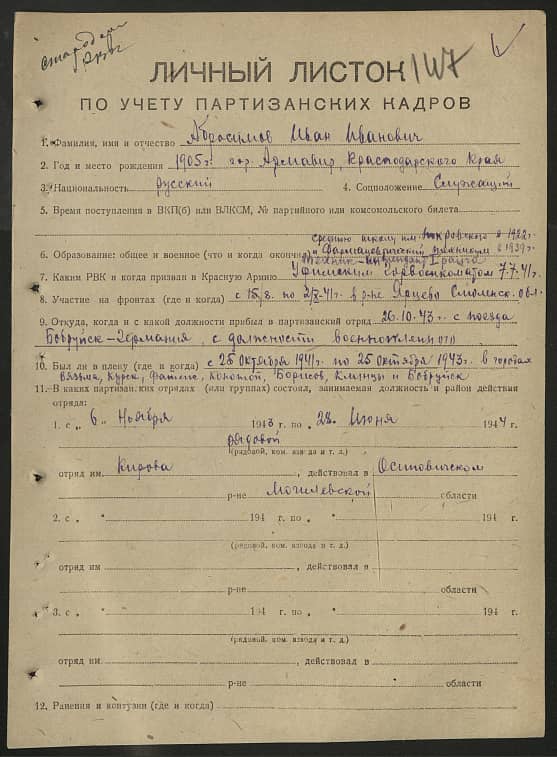 ЛИЧНЫЙ ЛИСТОК
ПО УЧЕТУ ПАРТИЗАНСКИХ КАДРОВ
1. Фамилия, имя и отчество Абросимов Иван Иванович
2. Год и место рождения 1905 г. гор. Армавир, Краснодарского Края
3. Национальность русский 4. Соцположение Служащий
5. Время поступления в ВКП(б) или ВЛКСМ, № партийного или комсомольского билета
среднюю школу им. в 1922 г.
Фармацевтический техникум в 1939 г.
6. Образование: общее и военное (что и когда окончил) I ранга
7. Каким РВК и когда призван в Красную Армию Уфимским горвоенкоматом 7.7.41 г.
8. Участие на фронтах (где и когда) с 15/8. по 2/X-41 г. в р-не Ярцево Смоленск. обл.
9. Откуда, когда и с какой должности прибыл в партизанский отряд 26.10.43 г. с поезда
Бобруйск-Германия, с должности военнопленного
10. Был ли в плену (где и когда) с 25 Октября 1941 г. по 25 Октября 1943 г. в городах
Вязьма, Курск, Фатеж, Конотоп, Борисов, Клинцы и Бобруйск
11. В каких партизанских отрядах (или группах) состоял, занимаемая должность и район действия
отряда:
1. с „6„ Ноября 1943 г. по „28„ Июня 1944 г.
рядовой
(рядовой, ком. взвода и т. д.)
отряд им. Кирова, действовал в Осиповичском
р-не Могилевской области
2. с „ “ 194 г. по „ “ 194 г.
(рядовой, ком. взвода и т. д.)
отряд им. , действовал в
р-не области
3. с „ “ 194 г. по „ “ 194 г.
(рядовой, ком. взвода и т. д.)
отряд им. , действовал в
р-не области
12. Ранения и контузии (где и когда)